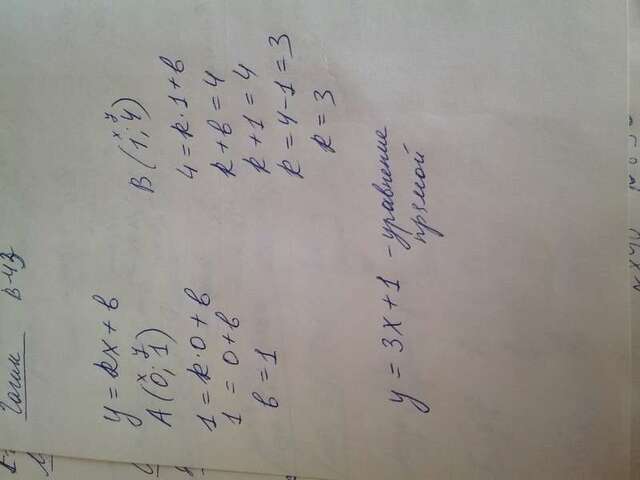 в-43
y = kx + b
x y
A (0; 1)
1 = k·0 + b
1 = 0 + b
b = 1
x y
B (1; 4)
4 = k·1 + b
k + b = 4
k + 1 = 4
k = 4 - 1 = 3
k = 3
y = 3x + 1 - уравнение
прямой